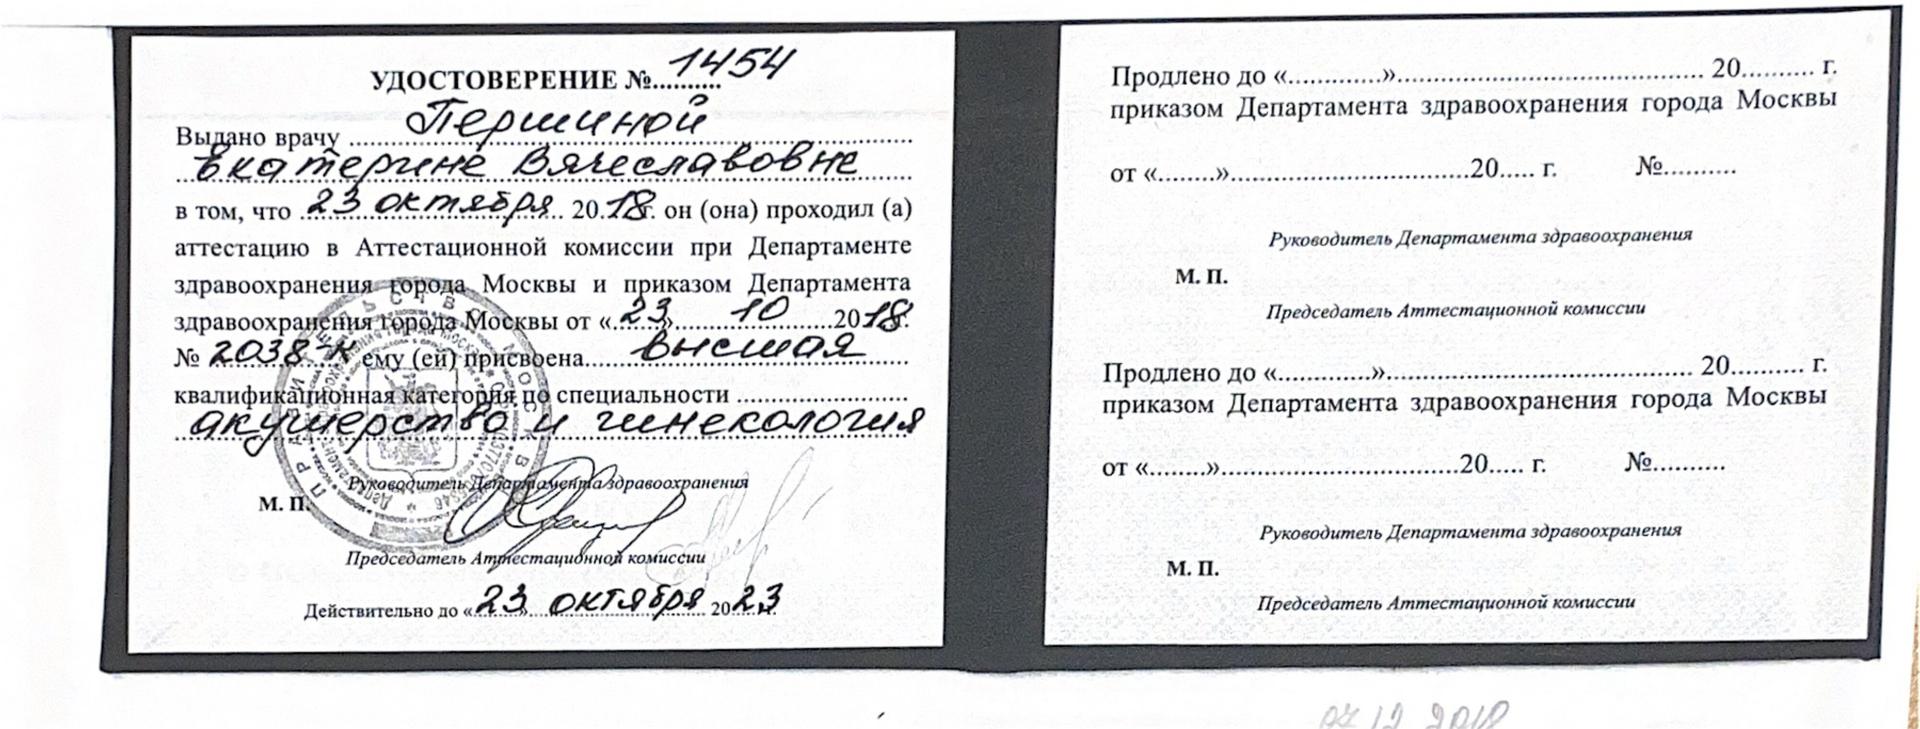 УДОСТОВЕРЕНИЕ №..........1454
Выдано врачу Першиной
Екатерине Вячеславовне
в том, что 23 октября 2018г. он (она) проходил (а)
аттестацию в Аттестационной комиссии при Департаменте
здравоохранения города Москвы и приказом Департамента
здравоохранения города Москвы от «23» 10 2018г.
№ 2038-к ему (ей) присвоена высшая
квалификационная категория по специальности
акушерство и гинекология
Руководитель Департамента здравоохранения
М. П.
Председатель Аттестационной комиссии
Действительно до «23» октября 2023г.
Продлено до «.............»........................................... 20.......... г.
приказом Департамента здравоохранения города Москвы
от «........»..................................20..... г. №..........
Руководитель Департамента здравоохранения
М. П.
Председатель Аттестационной комиссии
Продлено до «.............»........................................... 20.......... г.
приказом Департамента здравоохранения города Москвы
от «........»..................................20..... г. №..........
Руководитель Департамента здравоохранения
М. П.
Председатель Аттестационной комиссии
07 12 2018